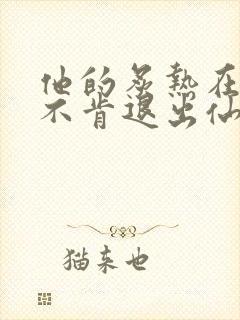 他的炙热在
不肯退出仙
猫来也